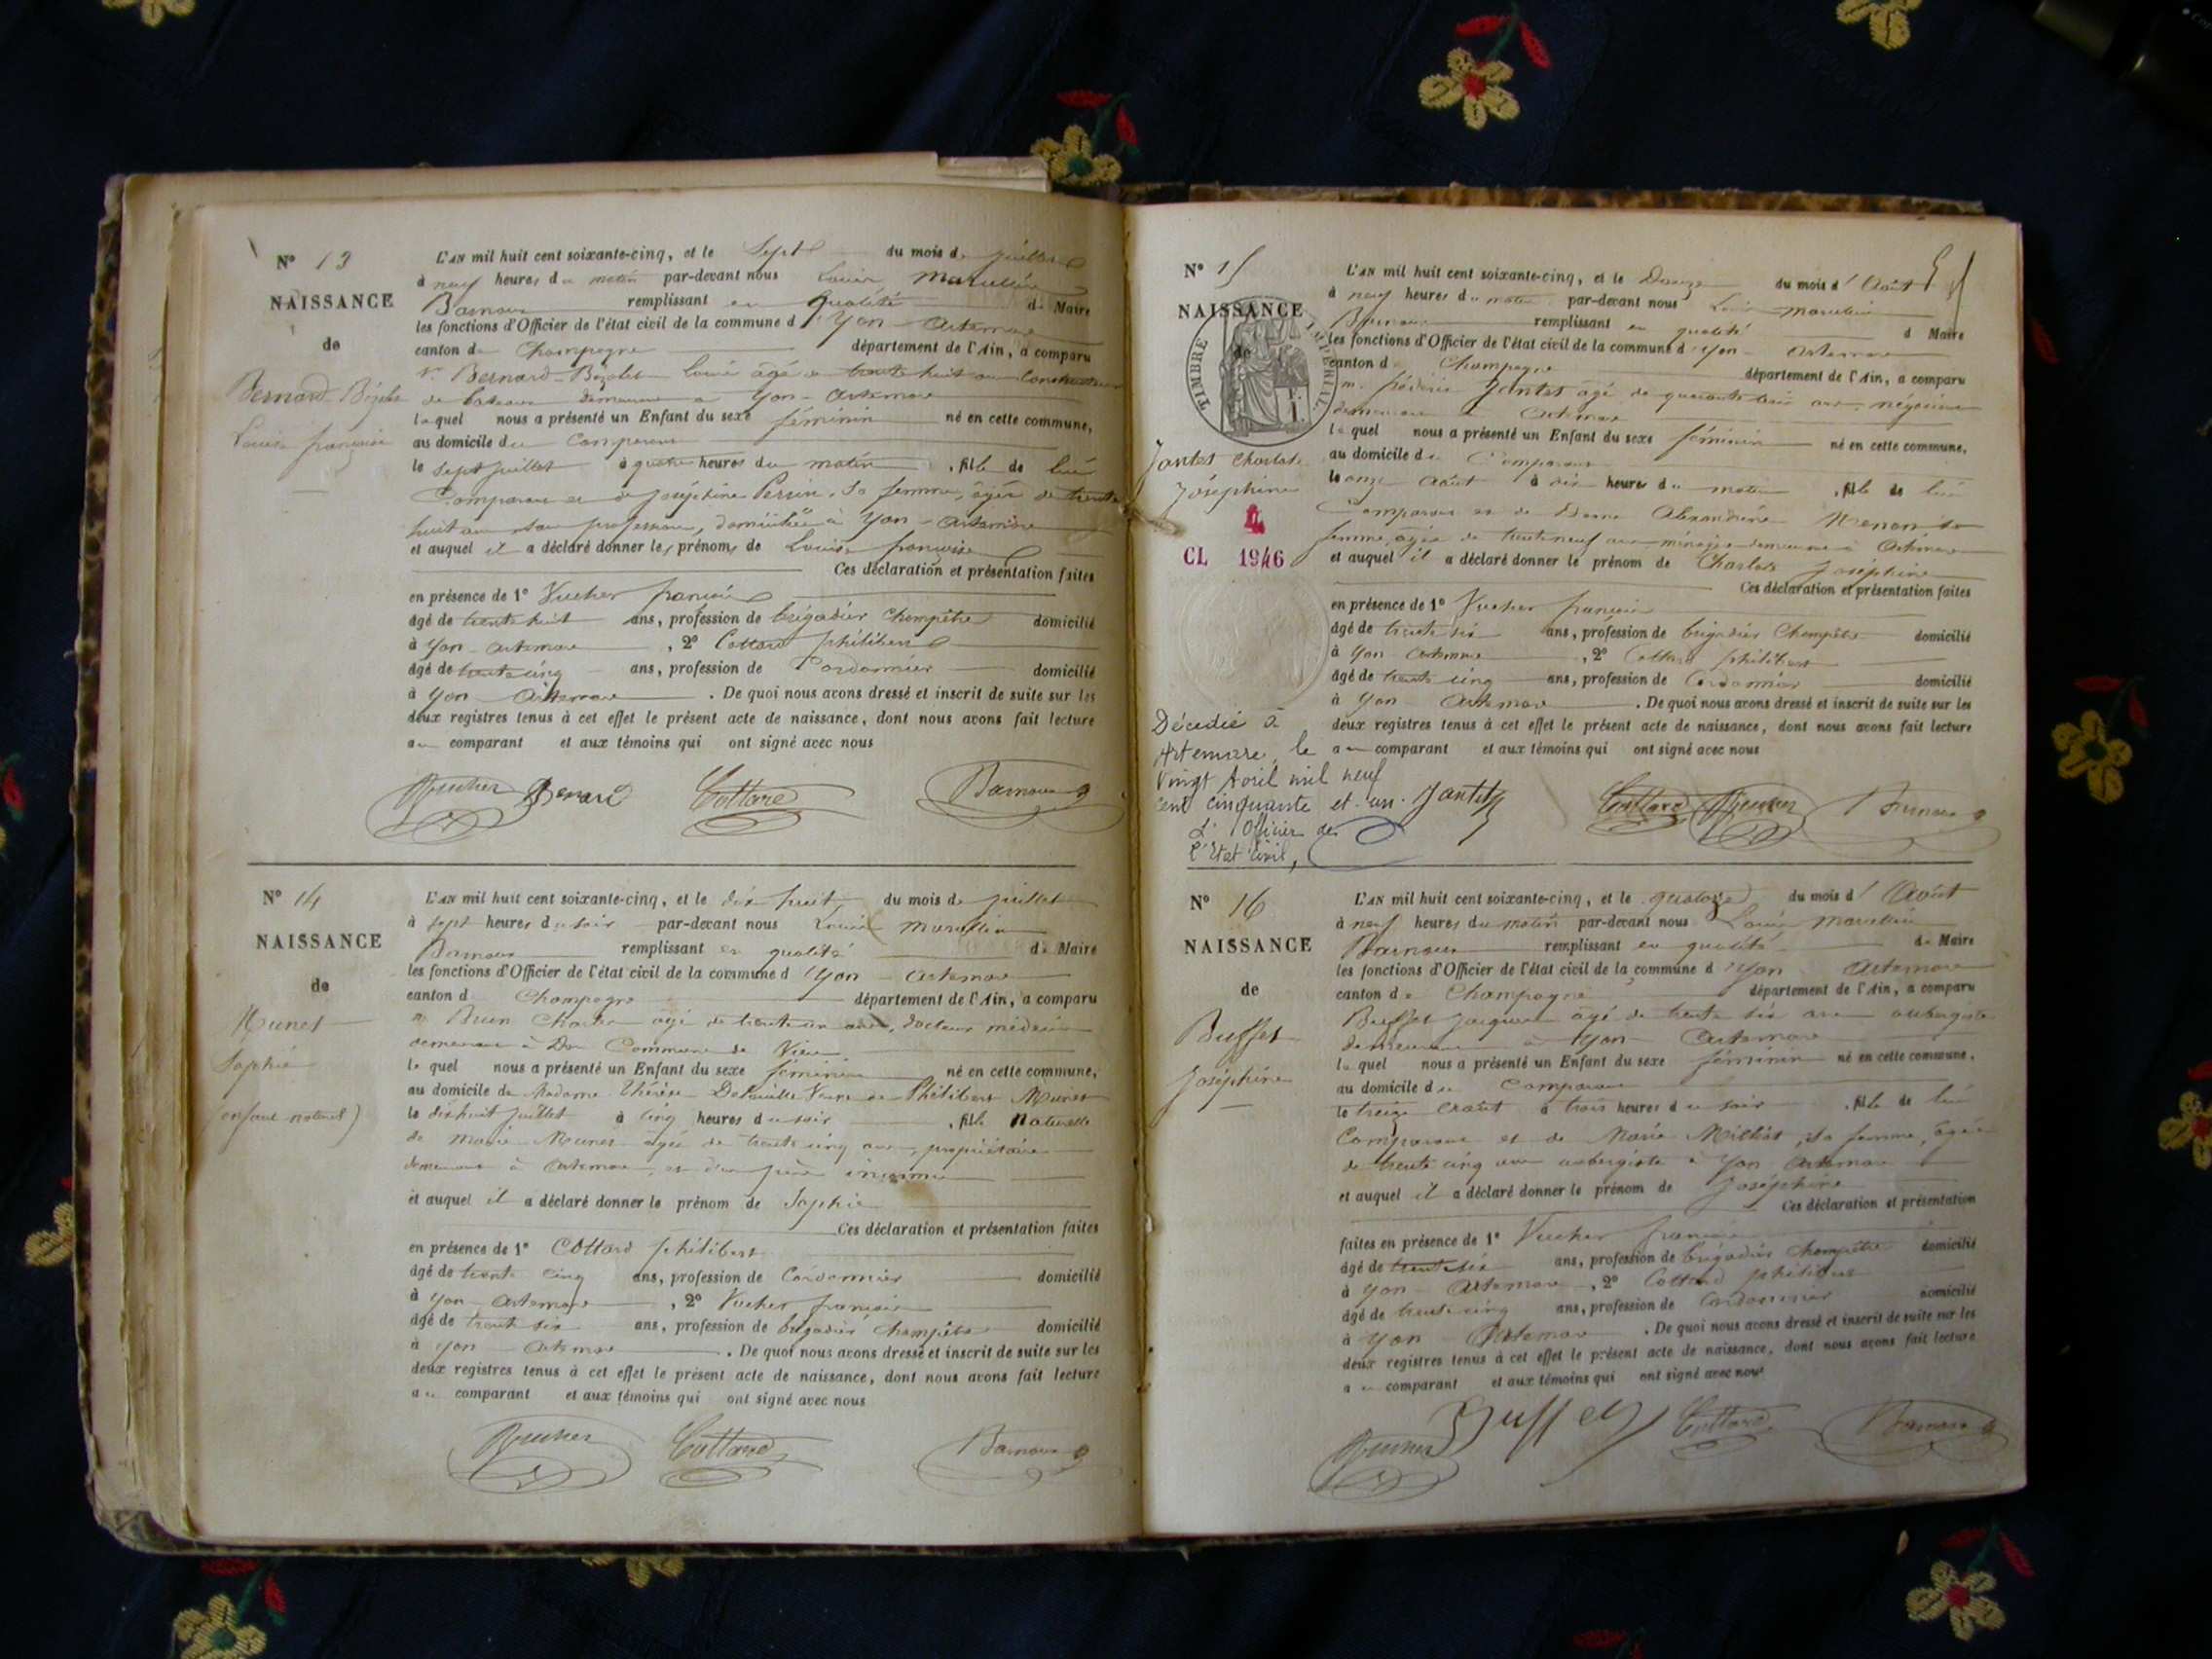 N° 13
NAISSANCE
de
Bernard-Bézolet
Louise françoise
L'AN mil huit cent soixante-cinq, et le Sept du mois de juillet
à neuf heures du matin par-devant nous Louis Marcellin
Barnoux remplissant en qualité de Maire
les fonctions d'Officier de l'état civil de la commune d'Yon-Artemare
canton de Champagne département de l'Ain, a comparu
Mr Bernard-Bézolet Louis âgé de trente huit ans Constructeur
de bateaux demeurant à Yon-Artemare
lequel nous a présenté un Enfant du sexe féminin né en cette commune,
au domicile du Comparant
le sept juillet à quatre heures du matin, fille de lui
Comparant et de joséphine Perrin, sa femme, âgée de trente
huit ans sans profession, domiciliée à Yon-Artemare
et auquel il a déclaré donner les prénoms de Louise françoise
Ces déclaration et présentation faites
en présence de 1° Vucher françois
âgé de trente huit ans, profession de brigadier Champêtre domicilié
à Yon-Artemare, 2° Cottard philibert
âgé de trente cinq ans, profession de Cordonnier domicilié
à Yon Artemare. De quoi nous avons dressé et inscrit de suite sur les
deux registres tenus à cet effet le présent acte de naissance, dont nous avons fait lecture
au comparant et aux témoins qui ont signé avec nous
Vucher Benard Cottard Barnoux
N° 14
NAISSANCE
de
Munet
Sophie
(enfant naturel)
L'AN mil huit cent soixante-cinq, et le dix huit du mois de juillet
à sept heures du soir par-devant nous Louis Marcellin
Barnoux remplissant en qualité de Maire
les fonctions d'Officier de l'état civil de la commune d'Yon-Artemare
canton d Champagne département de l'Ain, a comparu
Mr Brun Charles âgé de trente un ans, docteur médecin
demeurant à Don Commune de Vieu
lequel nous a présenté un Enfant du sexe féminin né en cette commune,
au domicile de Madame Thérèse Veuve de Philibert Munet
le dix huit juillet à cinq heures du soir, fille naturelle
de Marie Munet âgée de trente cinq ans, propriétaire
demeurant à Artemare, et d'un père inconnu
et auquel il a déclaré donner le prénom de Sophie
Ces déclaration et présentation faites
en présence de 1° Cottard philibert
âgé de trente cinq ans, profession de Cordonnier domicilié
à Yon-Artemare, 2° Vucher françois
âgé de trente six ans, profession de brigadier Champêtre domicilié
à Yon-Artemare. De quoi nous avons dressé et inscrit de suite sur les
deux registres tenus à cet effet le présent acte de naissance, dont nous avons fait lecture
au comparant et aux témoins qui ont signé avec nous
Vucher Cottard Barnoux
N° 15
NAISSANCE
de
TIMBRE IMPERIAL
Jantet Charlotte
Joséphine
CL 1946
Décédée à
Artemare, le
Vingt Avril mil neuf
cent cinquante et un.
L'Officier de
l'Etat Civil,
L'AN mil huit cent soixante-cinq, et le Douze du mois d'Août
à neuf heures du matin par-devant nous Louis Marcellin
Barnoux remplissant en qualité d Maire
les fonctions d'Officier de l'état civil de la commune d'Yon-Artemare
canton d Champagne département de l'Ain, a comparu
M. fréderic Jantet âgé de quarante trois ans, négociant
demeurant à Artemare
lequel nous a présenté un Enfant du sexe féminin né en cette commune,
au domicile du Comparant
le onze Août à dix heures du matin, fille de lui
Comparant et de Dame Alexandrine Menon sa
femme, âgée de trente neuf ans, ménagère demeurant à Artemare
et auquel il a déclaré donner le prénom de Charlotte Joséphine
Ces déclaration et présentation faites
en présence de 1° Vucher françois
âgé de trente six ans, profession de brigadier Champêtre domicilié
à Yon-Artemare, 2° Cottard philibert
âgé de trente cinq ans, profession de Cordonnier domicilié
à Yon Artemare. De quoi nous avons dressé et inscrit de suite sur les
deux registres tenus à cet effet le présent acte de naissance, dont nous avons fait lecture
au comparant et aux témoins qui ont signé avec nous
Jantet Cottard Vucher Barnoux
N° 16
NAISSANCE
de
Buffet
Joséphine
L'AN mil huit cent soixante-cinq, et le quatorze du mois d'Août
à neuf heures du matin par-devant nous Louis Marcellin
Barnoux remplissant en qualité de Maire
les fonctions d'Officier de l'état civil de la commune d'Yon Artemare
canton de Champagne département de l'Ain, a comparu
Buffet jacques âgé de trente six ans aubergiste
demeurant à Yon Artemare
lequel nous a présenté un Enfant du sexe féminin né en cette commune,
au domicile du Comparant
le treize Août à trois heures du soir, fille de lui
Comparant et de Marie Milliat, sa femme, âgée
de trente cinq ans aubergiste à Yon Artemare
et auquel il a déclaré donner le prénom de Joséphine
Ces déclaration et présentation
faites en présence de 1° Vucher françois
âgé de trente six ans, profession de brigadier Champêtre domicilié
à Yon-Artemare, 2° Cottard philibert
âgé de trente cinq ans, profession de Cordonnier domicilié
à Yon Artemare. De quoi nous avons dressé et inscrit de suite sur les
deux registres tenus à cet effet le présent acte de naissance, dont nous avons fait lecture
au comparant et aux témoins qui ont signé avec nous
Vucher Buffet Cottard Barnoux